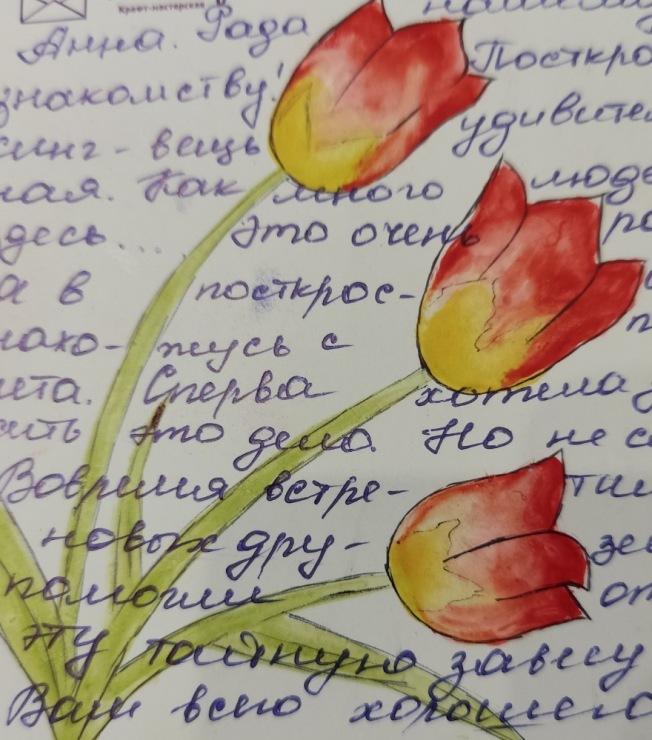 Крафт-мастерская
Анна. Рада
знакомству! Посткро
синг-вещь удивител
ная. Как много люде
десь... Это очень
а в посткрос-
нахо- жусь с
лета. Сперва хотела
сить это дело. Но не с
Вовремя встре-
новых дру- зе
помогли от
эту тайную завесу
Вам всего хорошего